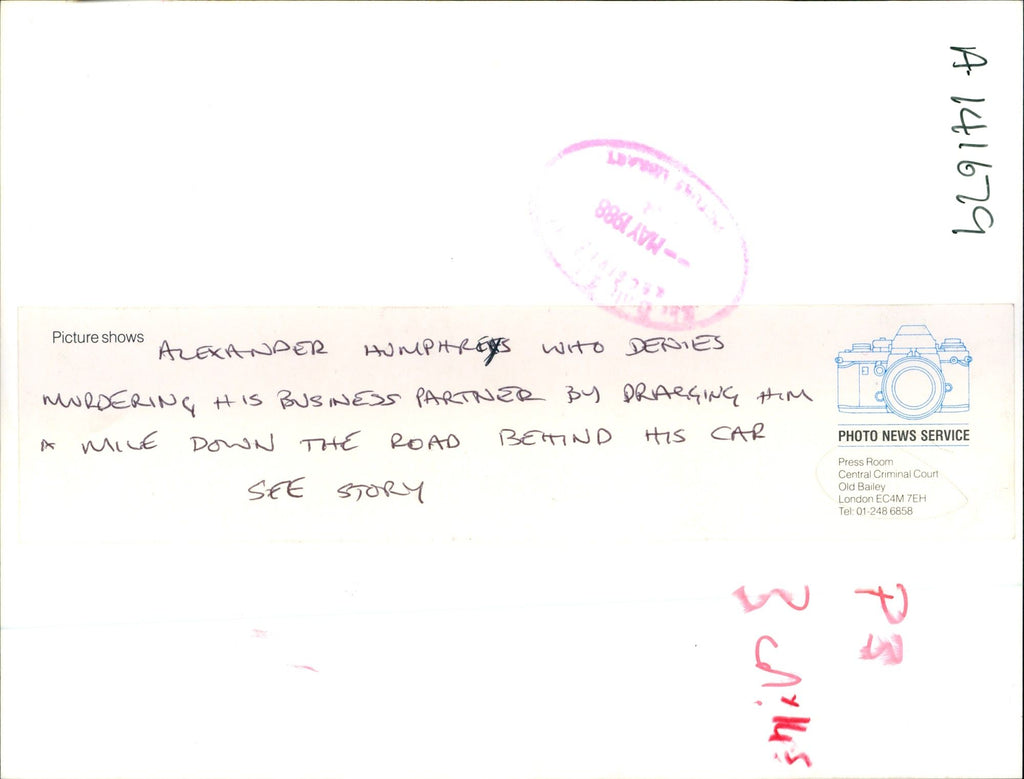 A 141679
PICTURE LIBRARY
- MAY 1988
Picture shows ALEXANDER HUMPHREYS WHO DENIES
MURDERING HIS BUSINESS PARTNER BY DRAGGING HIM
A MILE DOWN THE ROAD BEHIND HIS CAR
SEE STORY
PHOTO NEWS SERVICE
Press Room
Central Criminal Court
Old Bailey
London EC4M 7EH
Tel: 01-248 6858
P3
3